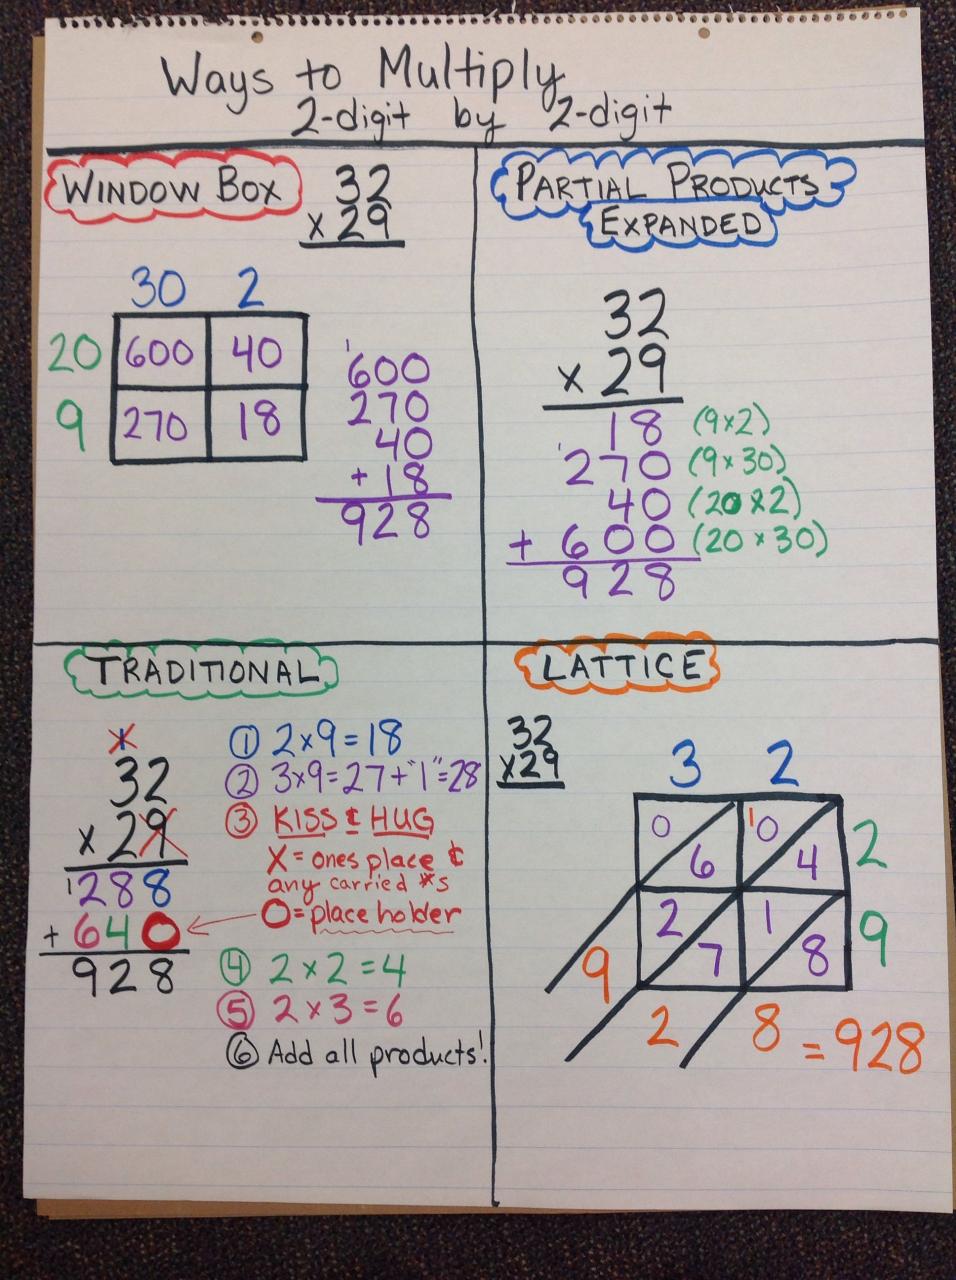 Ways to Multiply
2-digit by 2-digit
WINDOW BOX
32
x 29
30 2
20 600 40
9 270 18
1
600
270
40
+ 18
928
PARTIAL PRODUCTS
EXPANDED
32
x 29
18 (9x2)
1
270 (9x30)
40 (20x2)
+ 600 (20x30)
928
TRADITIONAL
1
32
x 29
1
288
+ 640
928
① 2x9=18
② 3x9=27+"1"=28
③ KISS & HUG
X = ones place &
any carried #s
O = place holder
④ 2x2=4
⑤ 2x3=6
⑥ Add all products!
LATTICE
32
x29
3 2
0 6 1 0 4 2
2 7 1 8 9
9
2 8 = 928